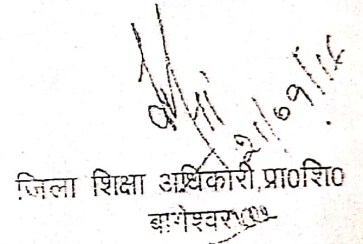 21/09/16
जिला शिक्षा अधिकारी, प्रा०शि०
बागेश्वर